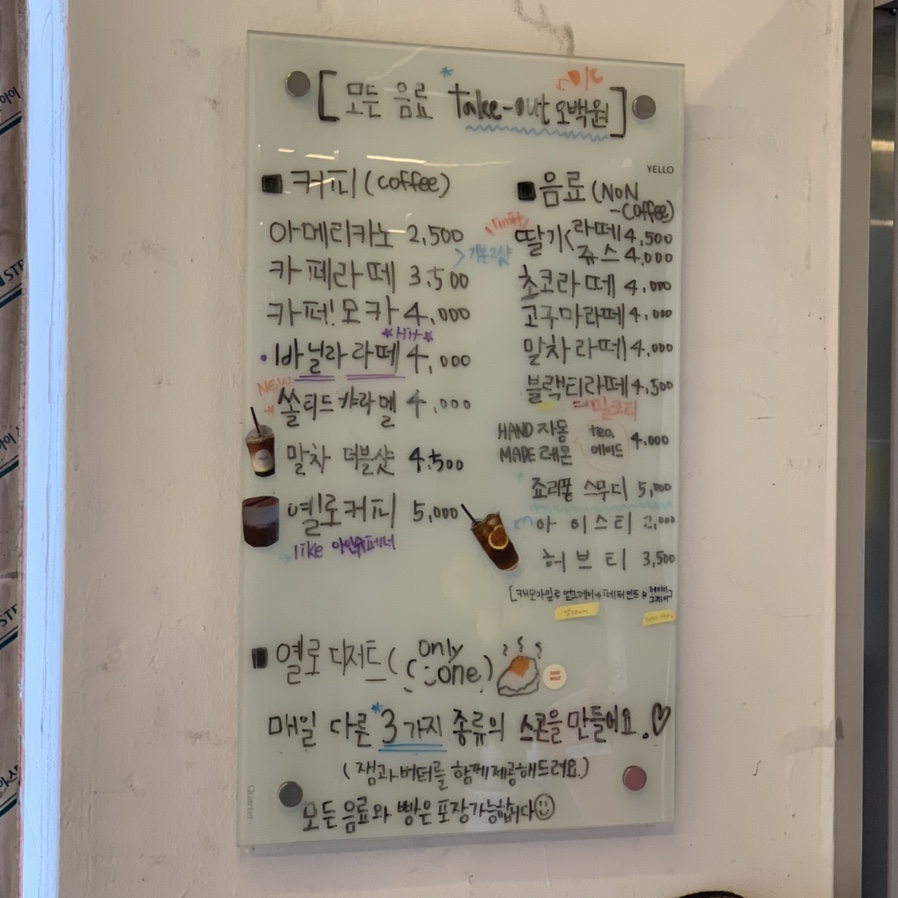 [모든 음료 take-out 오백원]
D/C
YELLO
■ 커피 (coffee)
아메리카노 2,500
기본2샷
카페라떼 3,500
카페!모카 4,000
*Hit*
바닐라 라떼 4,000
NEW
쏠티드 캬라멜 4,000
말차 더블샷 4,500
옐로커피 5,000
like 아인슈페너
■ 음료 (NON-coffee)
limit
딸기 라떼 4,500
쥬스 4,000
초코라떼 4,000
고구마라떼 4,000
말차라떼 4,000
블랙티라떼 4,500
=밀크티
HAND MADE 자몽 레몬 tea. 에이드 4,000
죠리퐁 스무디 5,000
아이스티 2,000
허브티 3,500
[캐모마일
■ 옐로 디저트 (only one)
매일 다른 *3가지 종류의 스콘을 만들어요.♡
(잼과 버터를 함께 제공해드려요.)
모든 음료와 빵은 포장가능합니다
Quartet